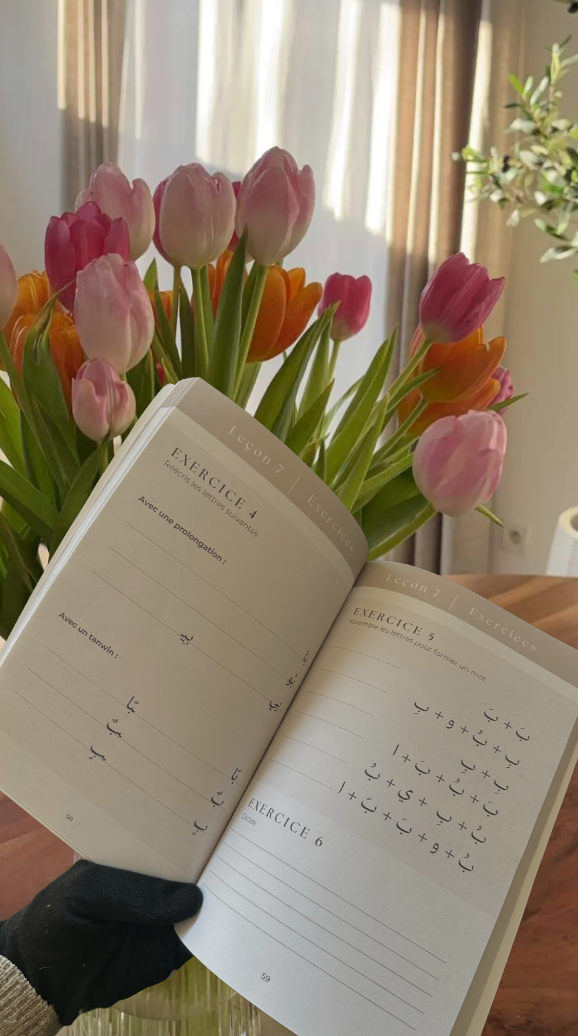 Leçon 7 | Exercices
EXERCICE 4
Réécris les lettres suivantes
Avec une prolongation :
بَا
بُو
بِي
Avec un tanwin :
بًا
بٌ
بٍ
58
Leçon 7 | Exercices
EXERCICE 5
assemble les lettres pour former un mot
بَ + بَ
بِ + بُ + و + بِ
بِ + بِ
بَ + بُ + بَ + ا
بُ + بِ + ي + بُ
بُ + و + بَ + بَ + ا
EXERCICE 6
Dictée
59